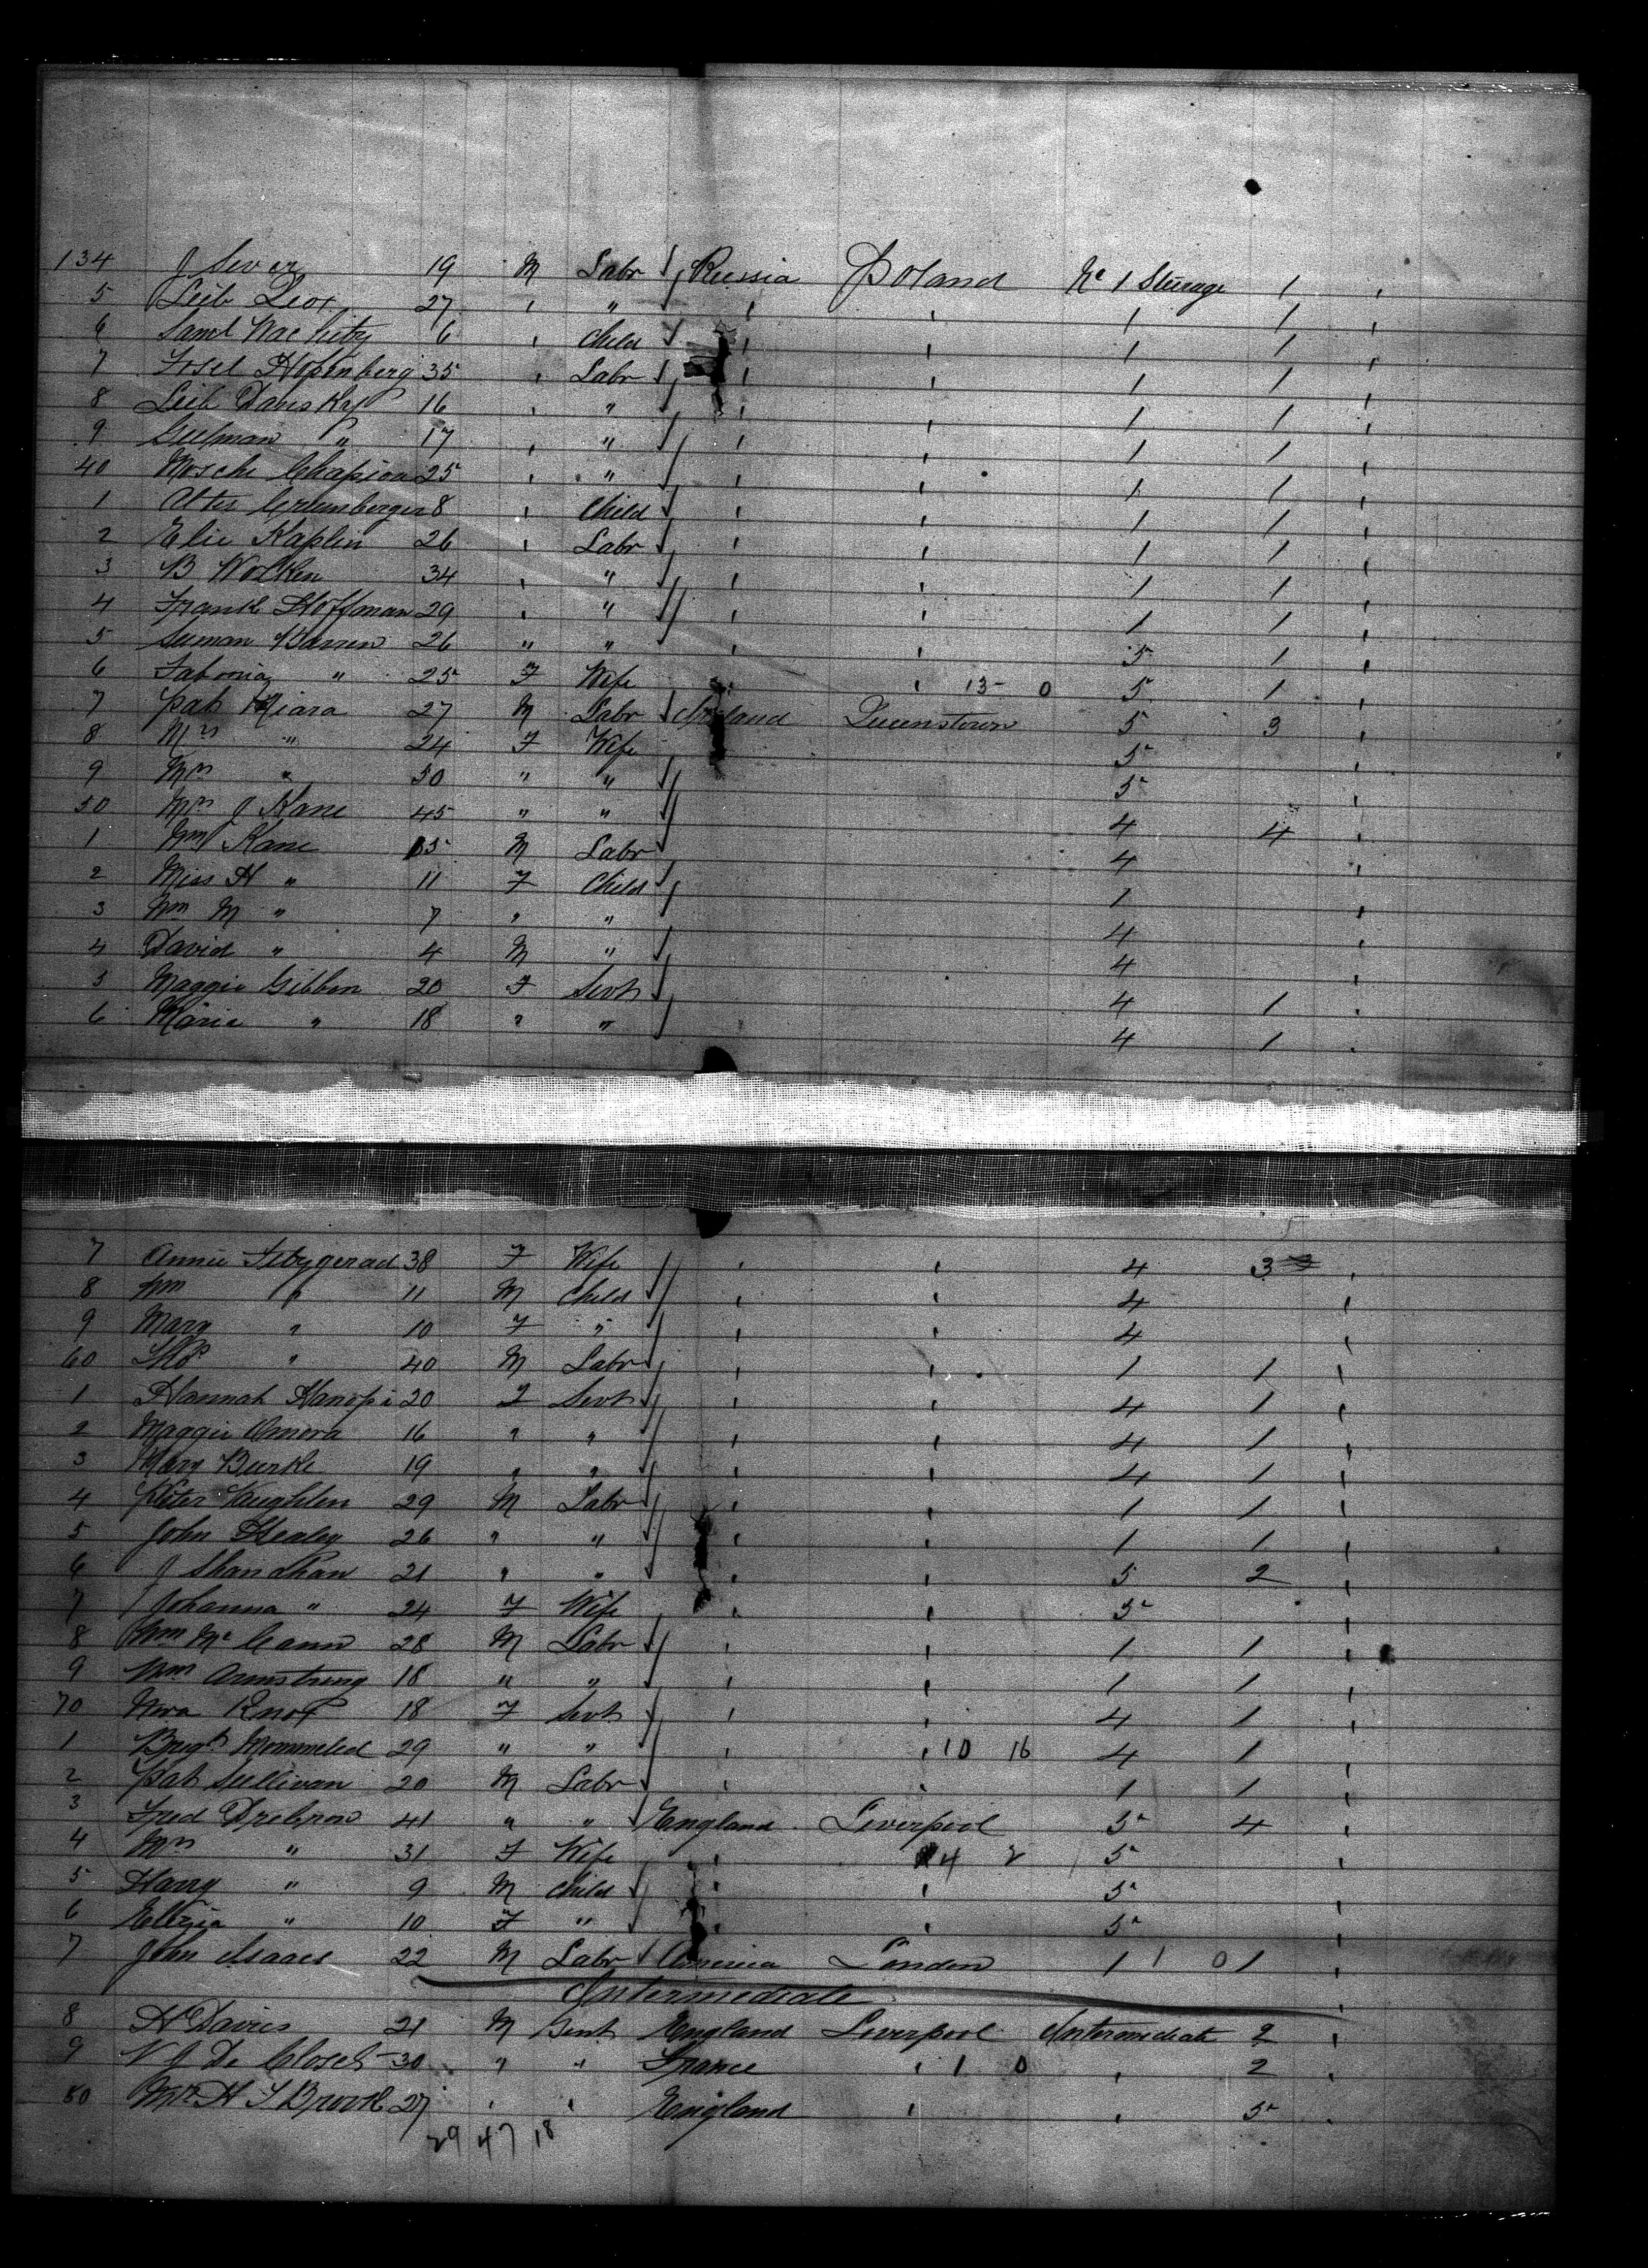 134 J Sever 19 M Labr Russia Poland No 1 Sturage 1
5 Leib 27 " " 1 1
6 Saml 6 " Child " " 1 1
7 Hopenberg 35 " Labr " " 1 1
8 Leib Dansky 16 " " " " 1 1
9 " 17 " " " " 1 1
40 Mosche Chapion 25 " " " " 1 1
1 Alter Grumberger 8 " Child " " 1 1
2 Elie Kaplin 26 " Labr " " 1 1
3 B Wolken 34 " " " " 1 1
4 Frank Hoffman 29 " " " " 1 1
5 26 " " " " 5 1
6 " 25 F Wife " " 13- 0 5 1
7 Pat 27 M Labr Ireland Queenstown 5 3
8 Mrs " 24 F Wife 5
9 Mrs " 50 " " 5
50 Mrs J Kane 45 " " 4 4
1 Wm Kane 15 M Labr 4
2 Miss H " 11 F Child 1
3 M " 7 " " 4
4 David " 4 M " 4
5 Maggie Gibbon 20 F Servt 4 1
6 Maria " 18 " " 4 1
7 Annie Fitzgerad 38 F Wife " " 4 3
8 Wm " 11 M Child " " 4
9 Mary " 10 F " " " 4
60 Thos " 40 M Labr " " 1 1
1 Hannah 20 F Servt " " 4 1
2 Maggie 16 " " " " 4 1
3 Mary Burke 19 " " " " 4 1
4 Peter Laughlen 29 M Labr " " 1 1
5 John Healey 26 " " " " 1 1
6 J Shanahan 21 " " " " 5 2
7 Johanna " 24 F Wife " " 5
8 Wm Mc Cann 28 M Labr " " 1 1
9 Wm Armstrong 18 " " " " 1 1
70 Nora Knox 18 F Servt " " 4 1
1 29 " " " " 10 16 4 1
2 Pat Sullivan 20 M Labr " " 1 1
3 Fred 41 " " England Liverpool 5 4
4 Mrs " 31 F Wife " 4 2 5
5 Harry " 9 M Child " " 5
6 " 10 F " " " 5
7 John Isaacs 22 M Labr America London 1 1 0 1
Intermediate
8 H Davies 21 M Gent England Liverpool Intermediate 2
9 V J De Closets 30 " " France " 1 0 " 2
80 Mr H S Brook 27 " " England " " 5
29 47 18